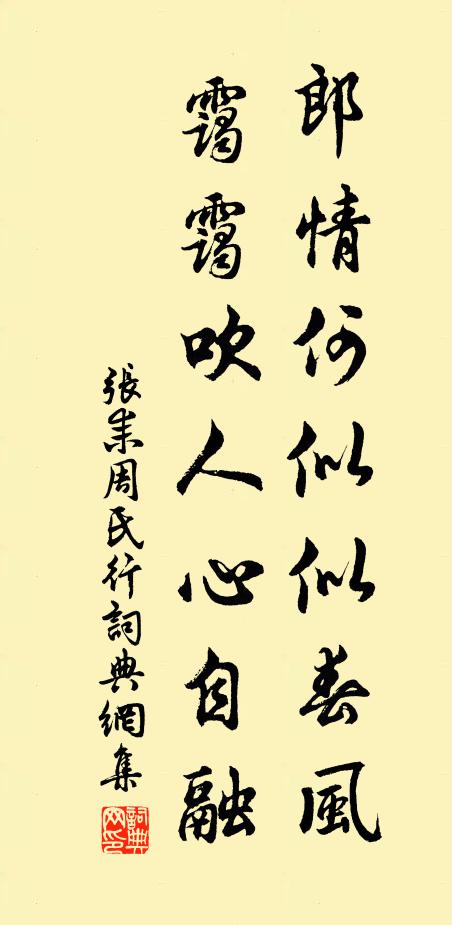 郎情何似似春風
靄靄吹人心自融
張耒周氏行詞典網集
詞典网印